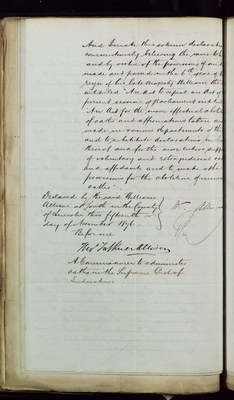 And I make this solemn declaration
conscientiously believing the same to be
and by virtue of the provisions of an Act
made and passed in the 6th year of the
reign of his late Majesty William the
intituled "An Act to repeal an Act of
present session of Parliament intituled
An Act for the more effectual abolition
of oaths and affirmations taken and
made in various departments of the
and to substitute declarations in
thereof and for the more entire suppression
of voluntary and extrajudicial oaths
and affidavits and to make other
provisions for the abolition of unnecessary
oaths"
Declared by the said William
at Louth in the County
of Lincoln this fifteenth
day of November 1876
Before me
A Commissioner to administer
oaths in the Supreme Court of